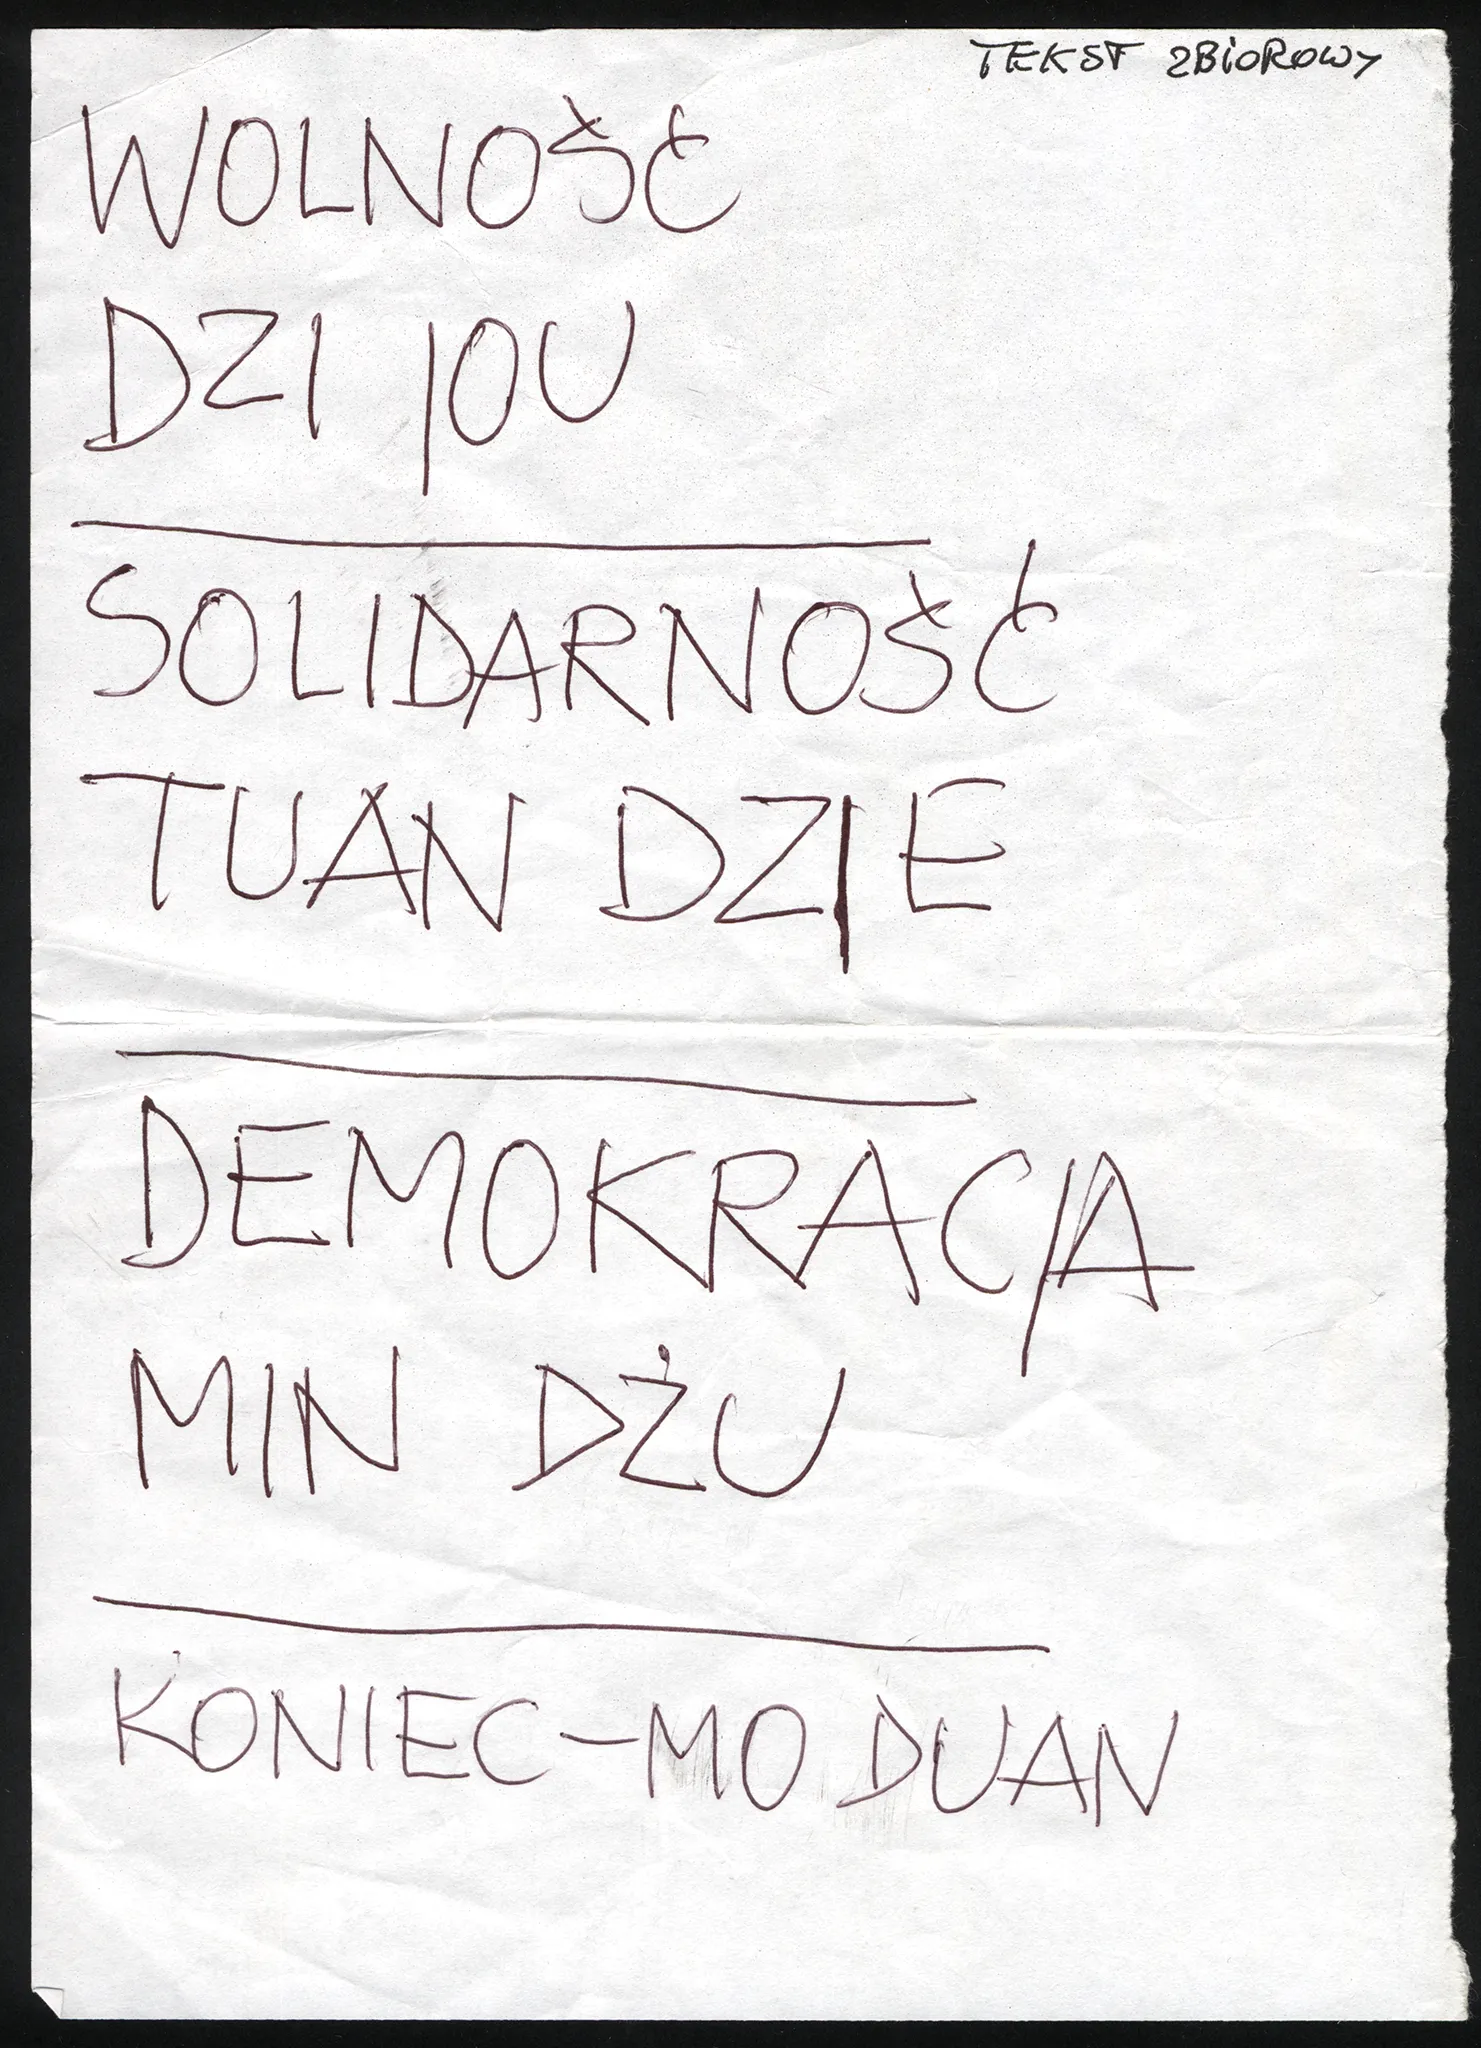 TEKST ZBIOROWY
WOLNOŚĆ
DZI JOU
SOLIDARNOŚĆ
TUAN DZIE
DEMOKRACJA
MIN DŻU
KONIEC – MO DUAN